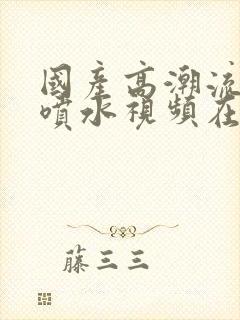 國產高潮流
噴水視頻在
藤三三